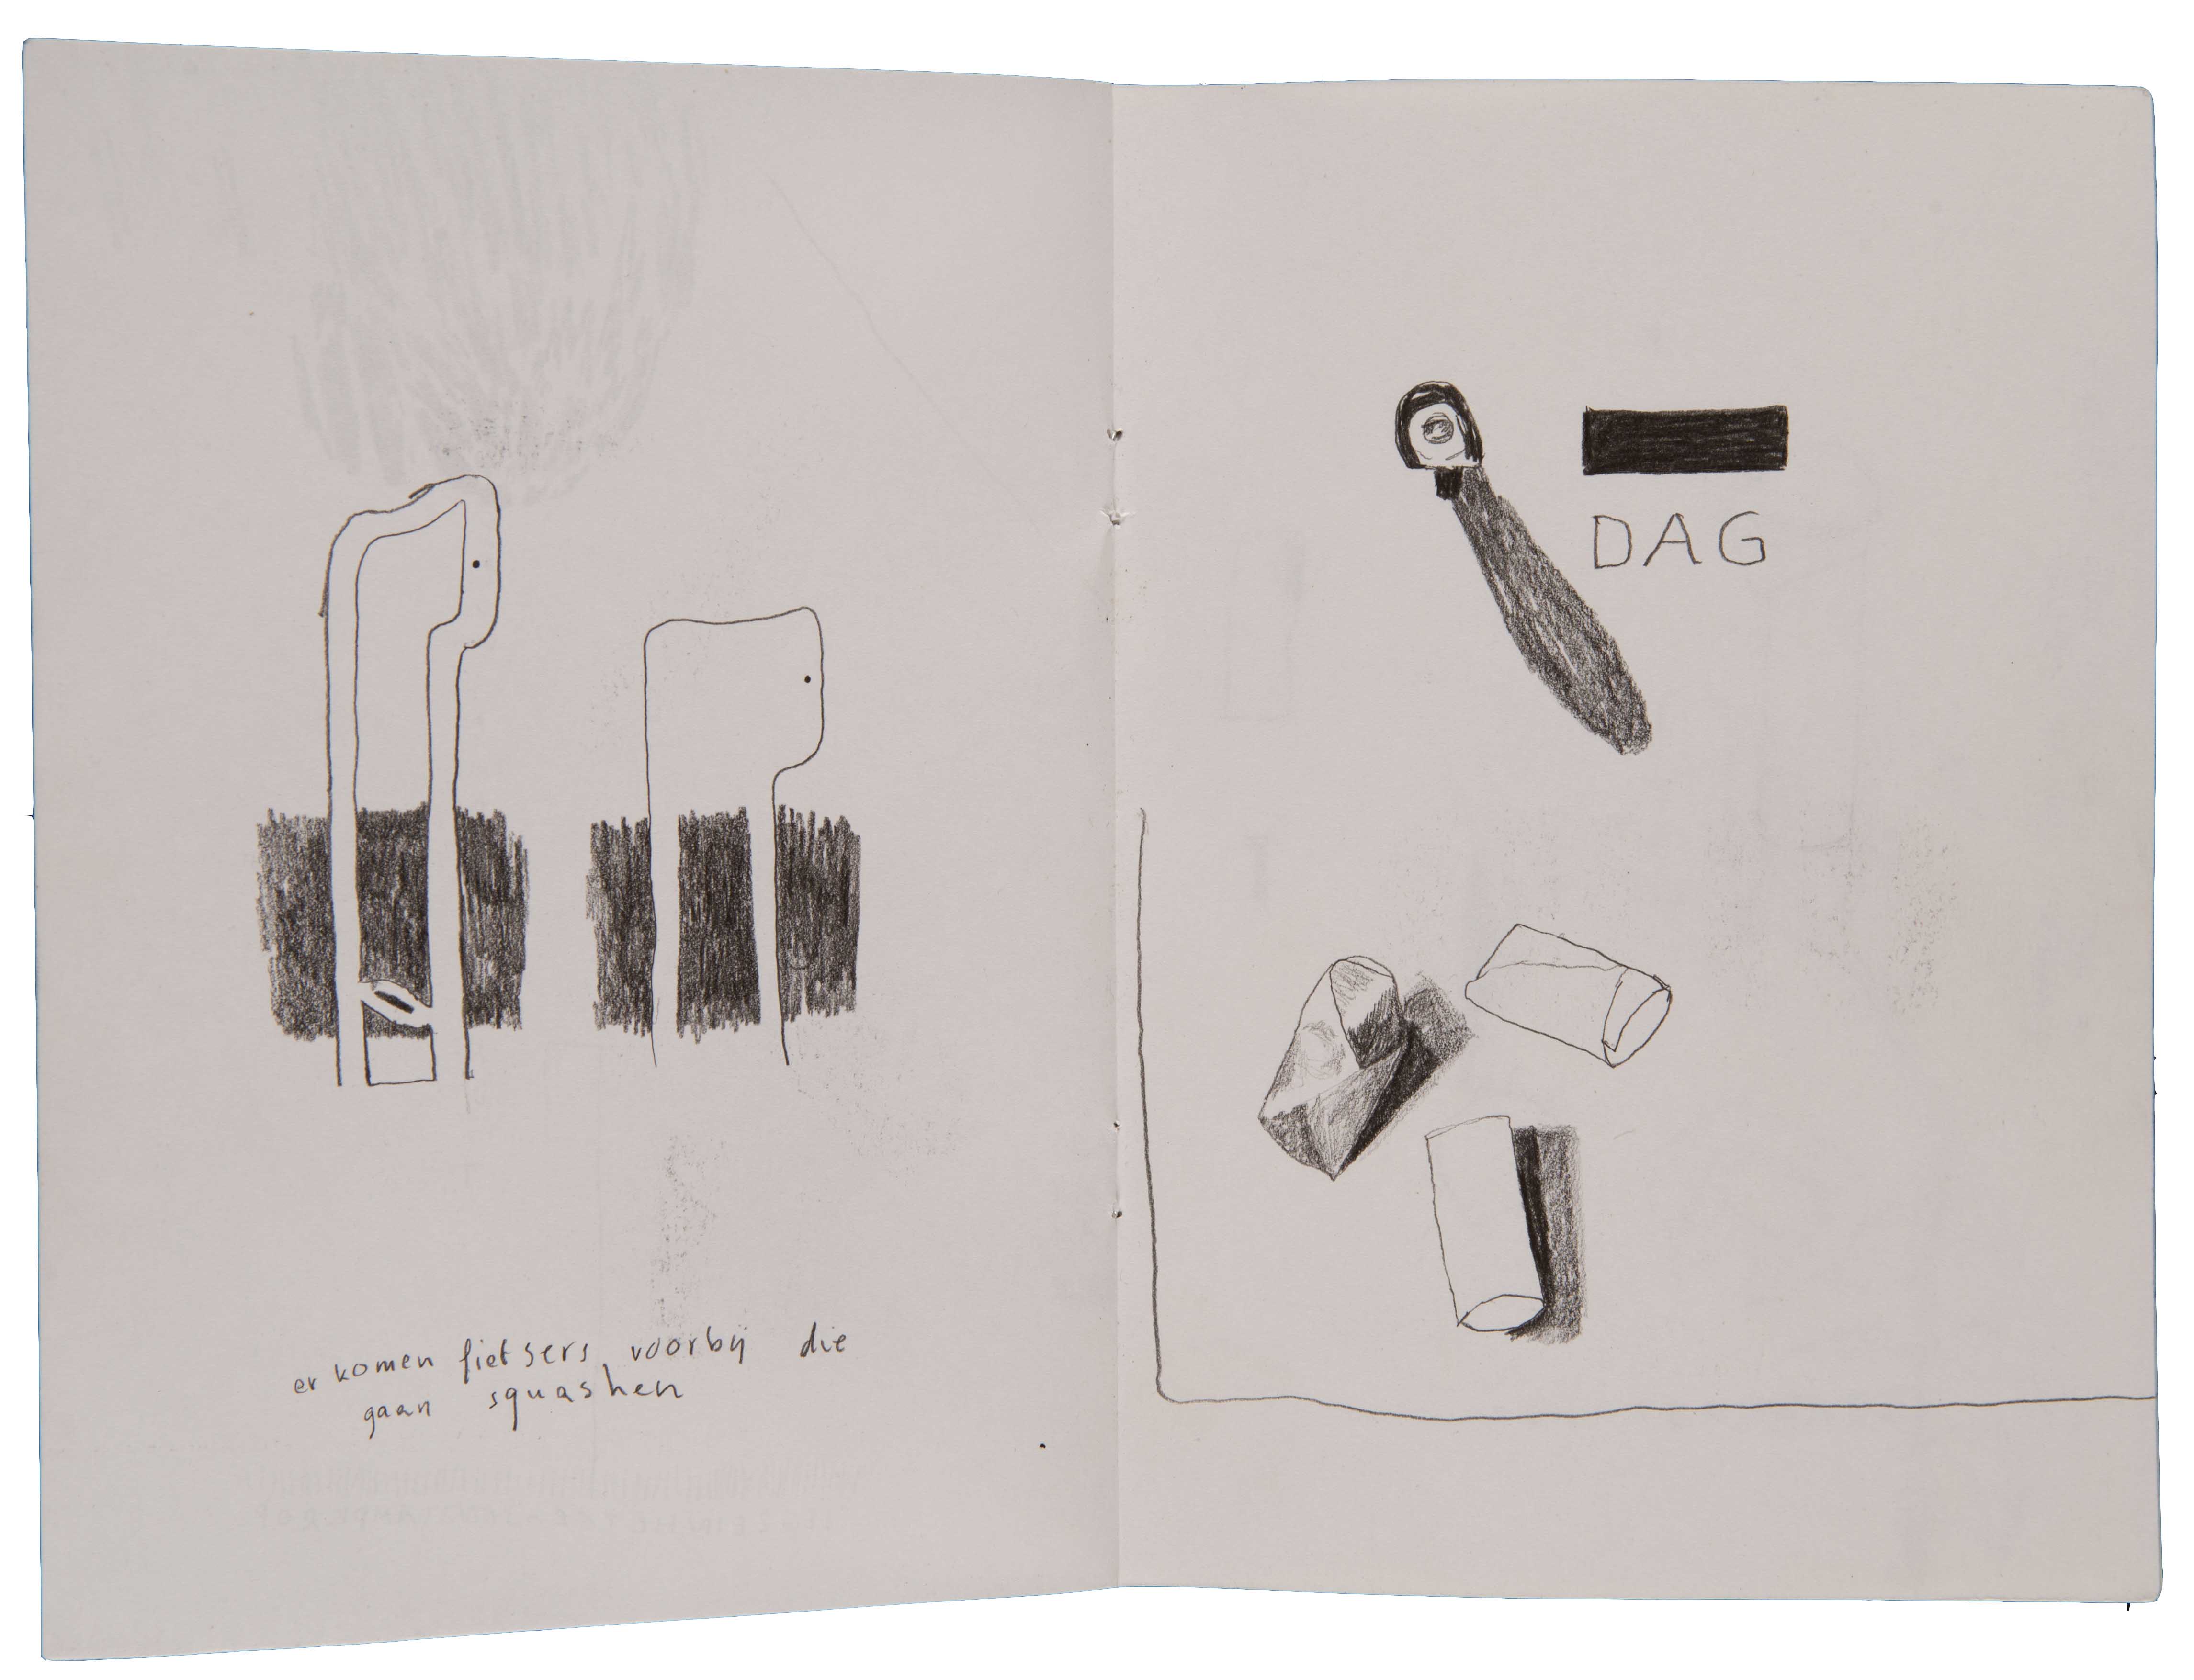 er komen fietsers voorbij die
gaan squashen
DAG